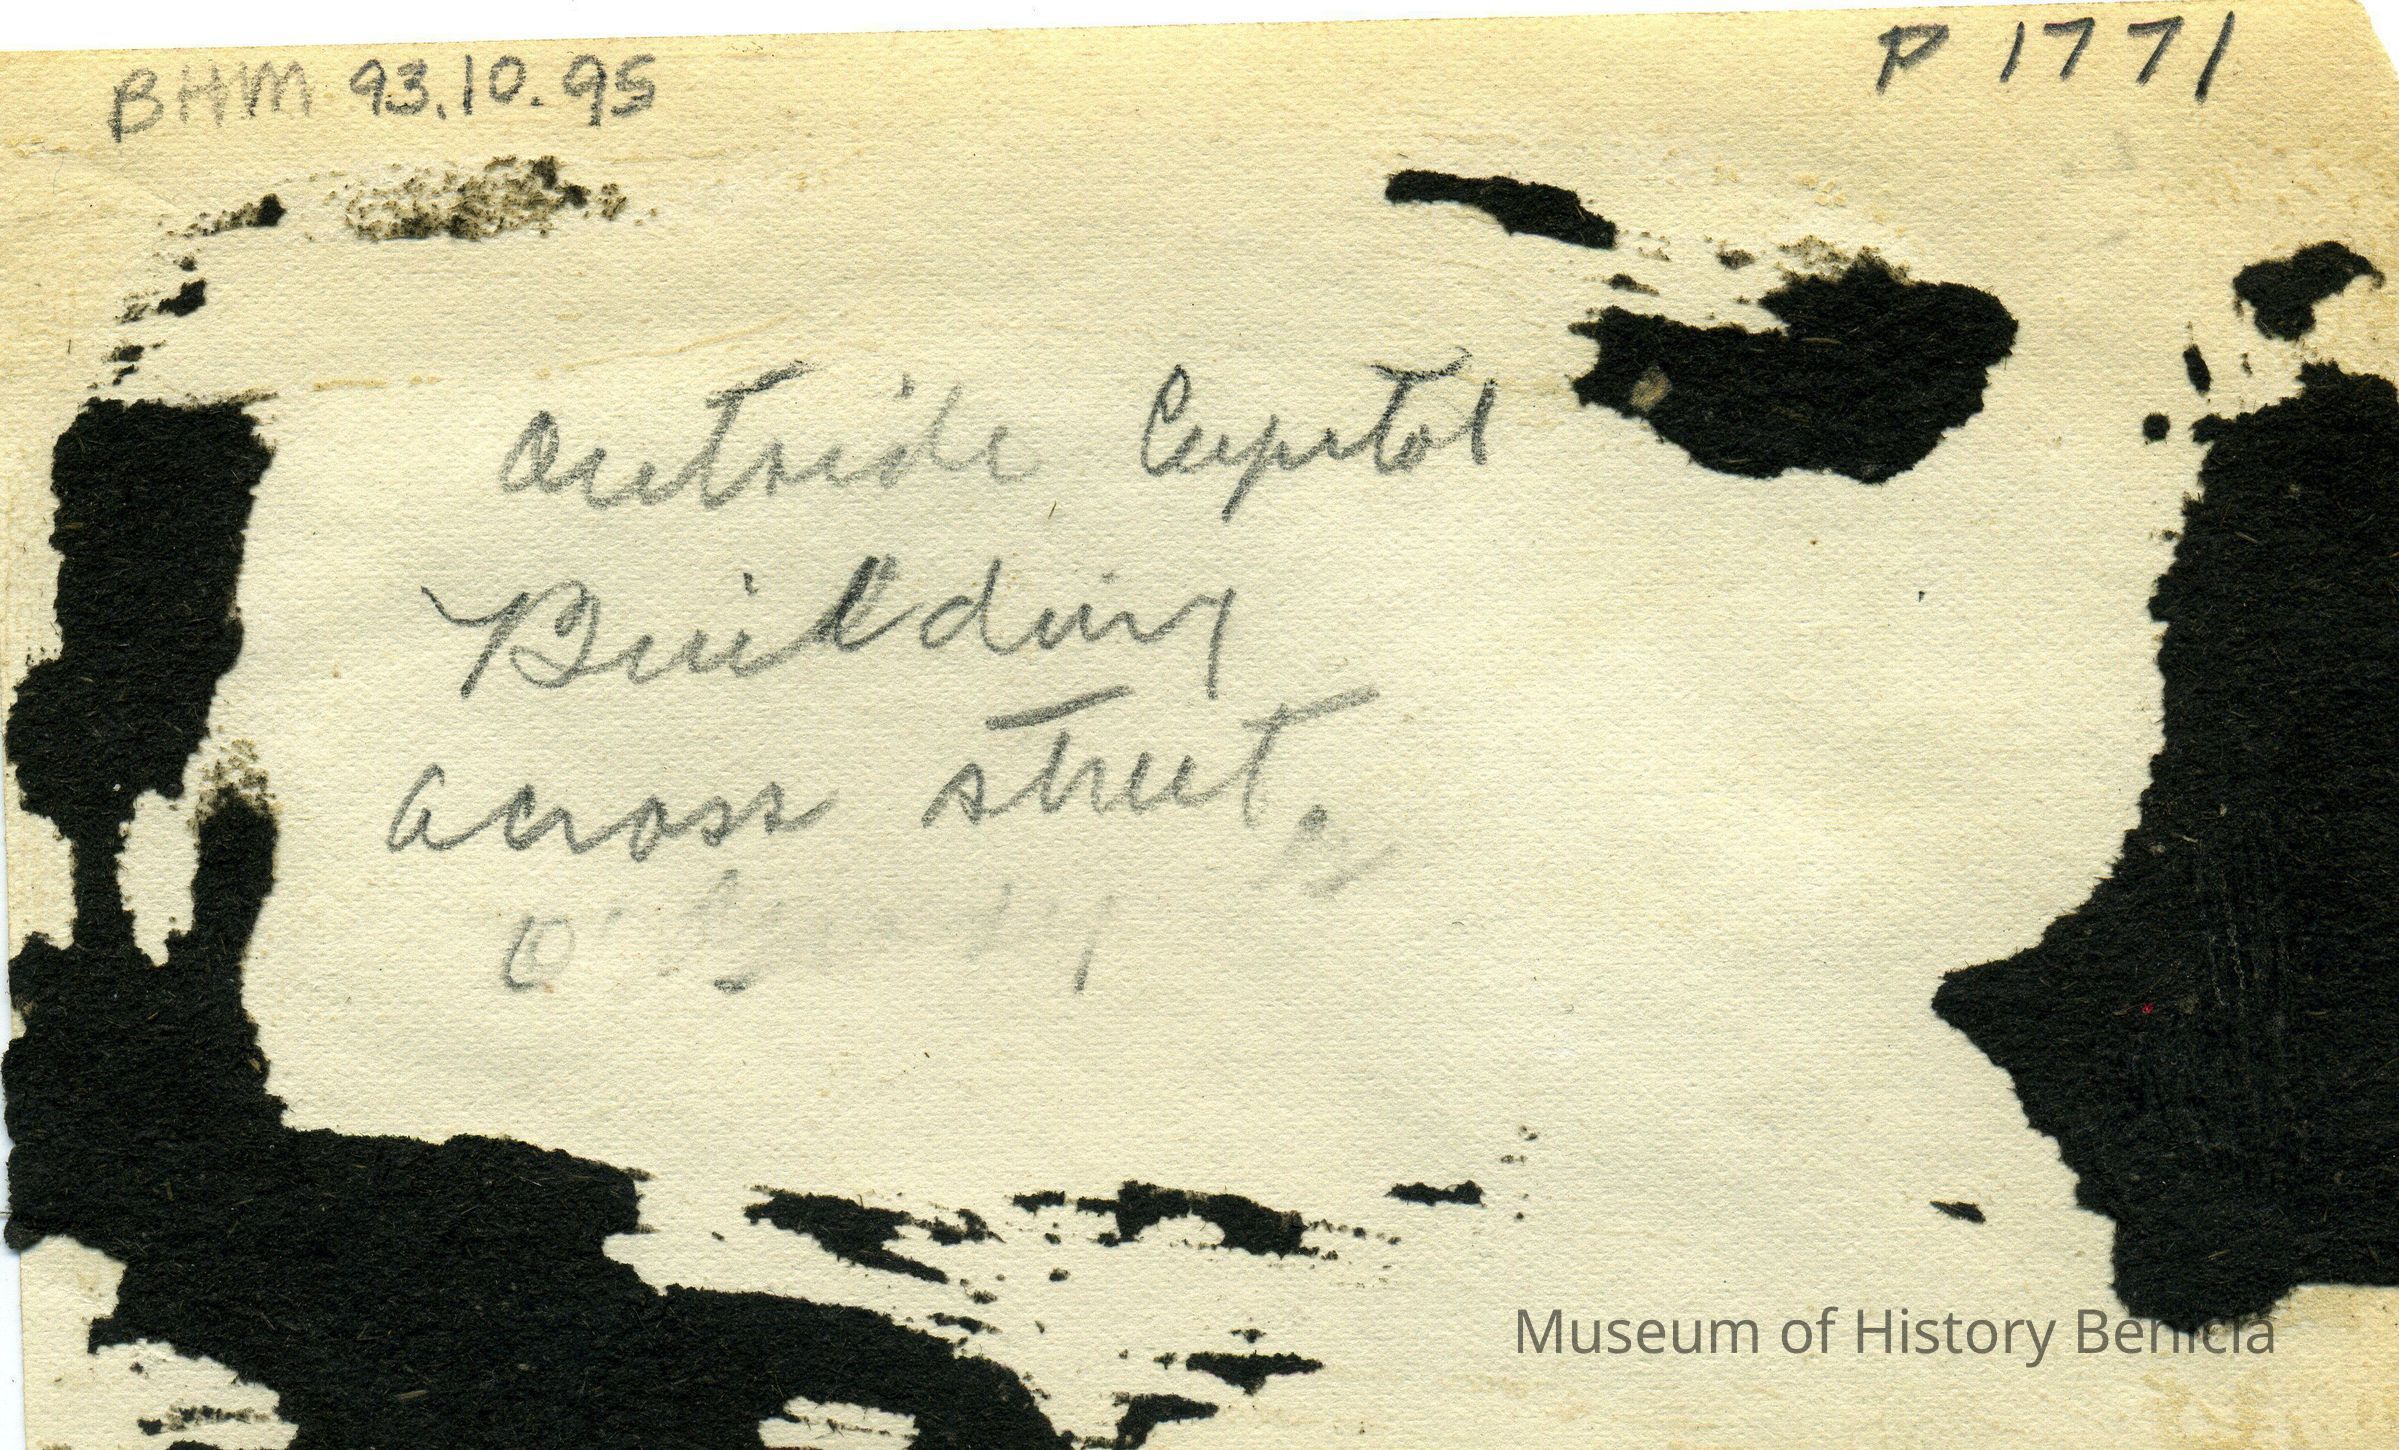 BHM 93.10.95
P 1771
Outside Capitol
Building
across street.
Museum of History Benicia